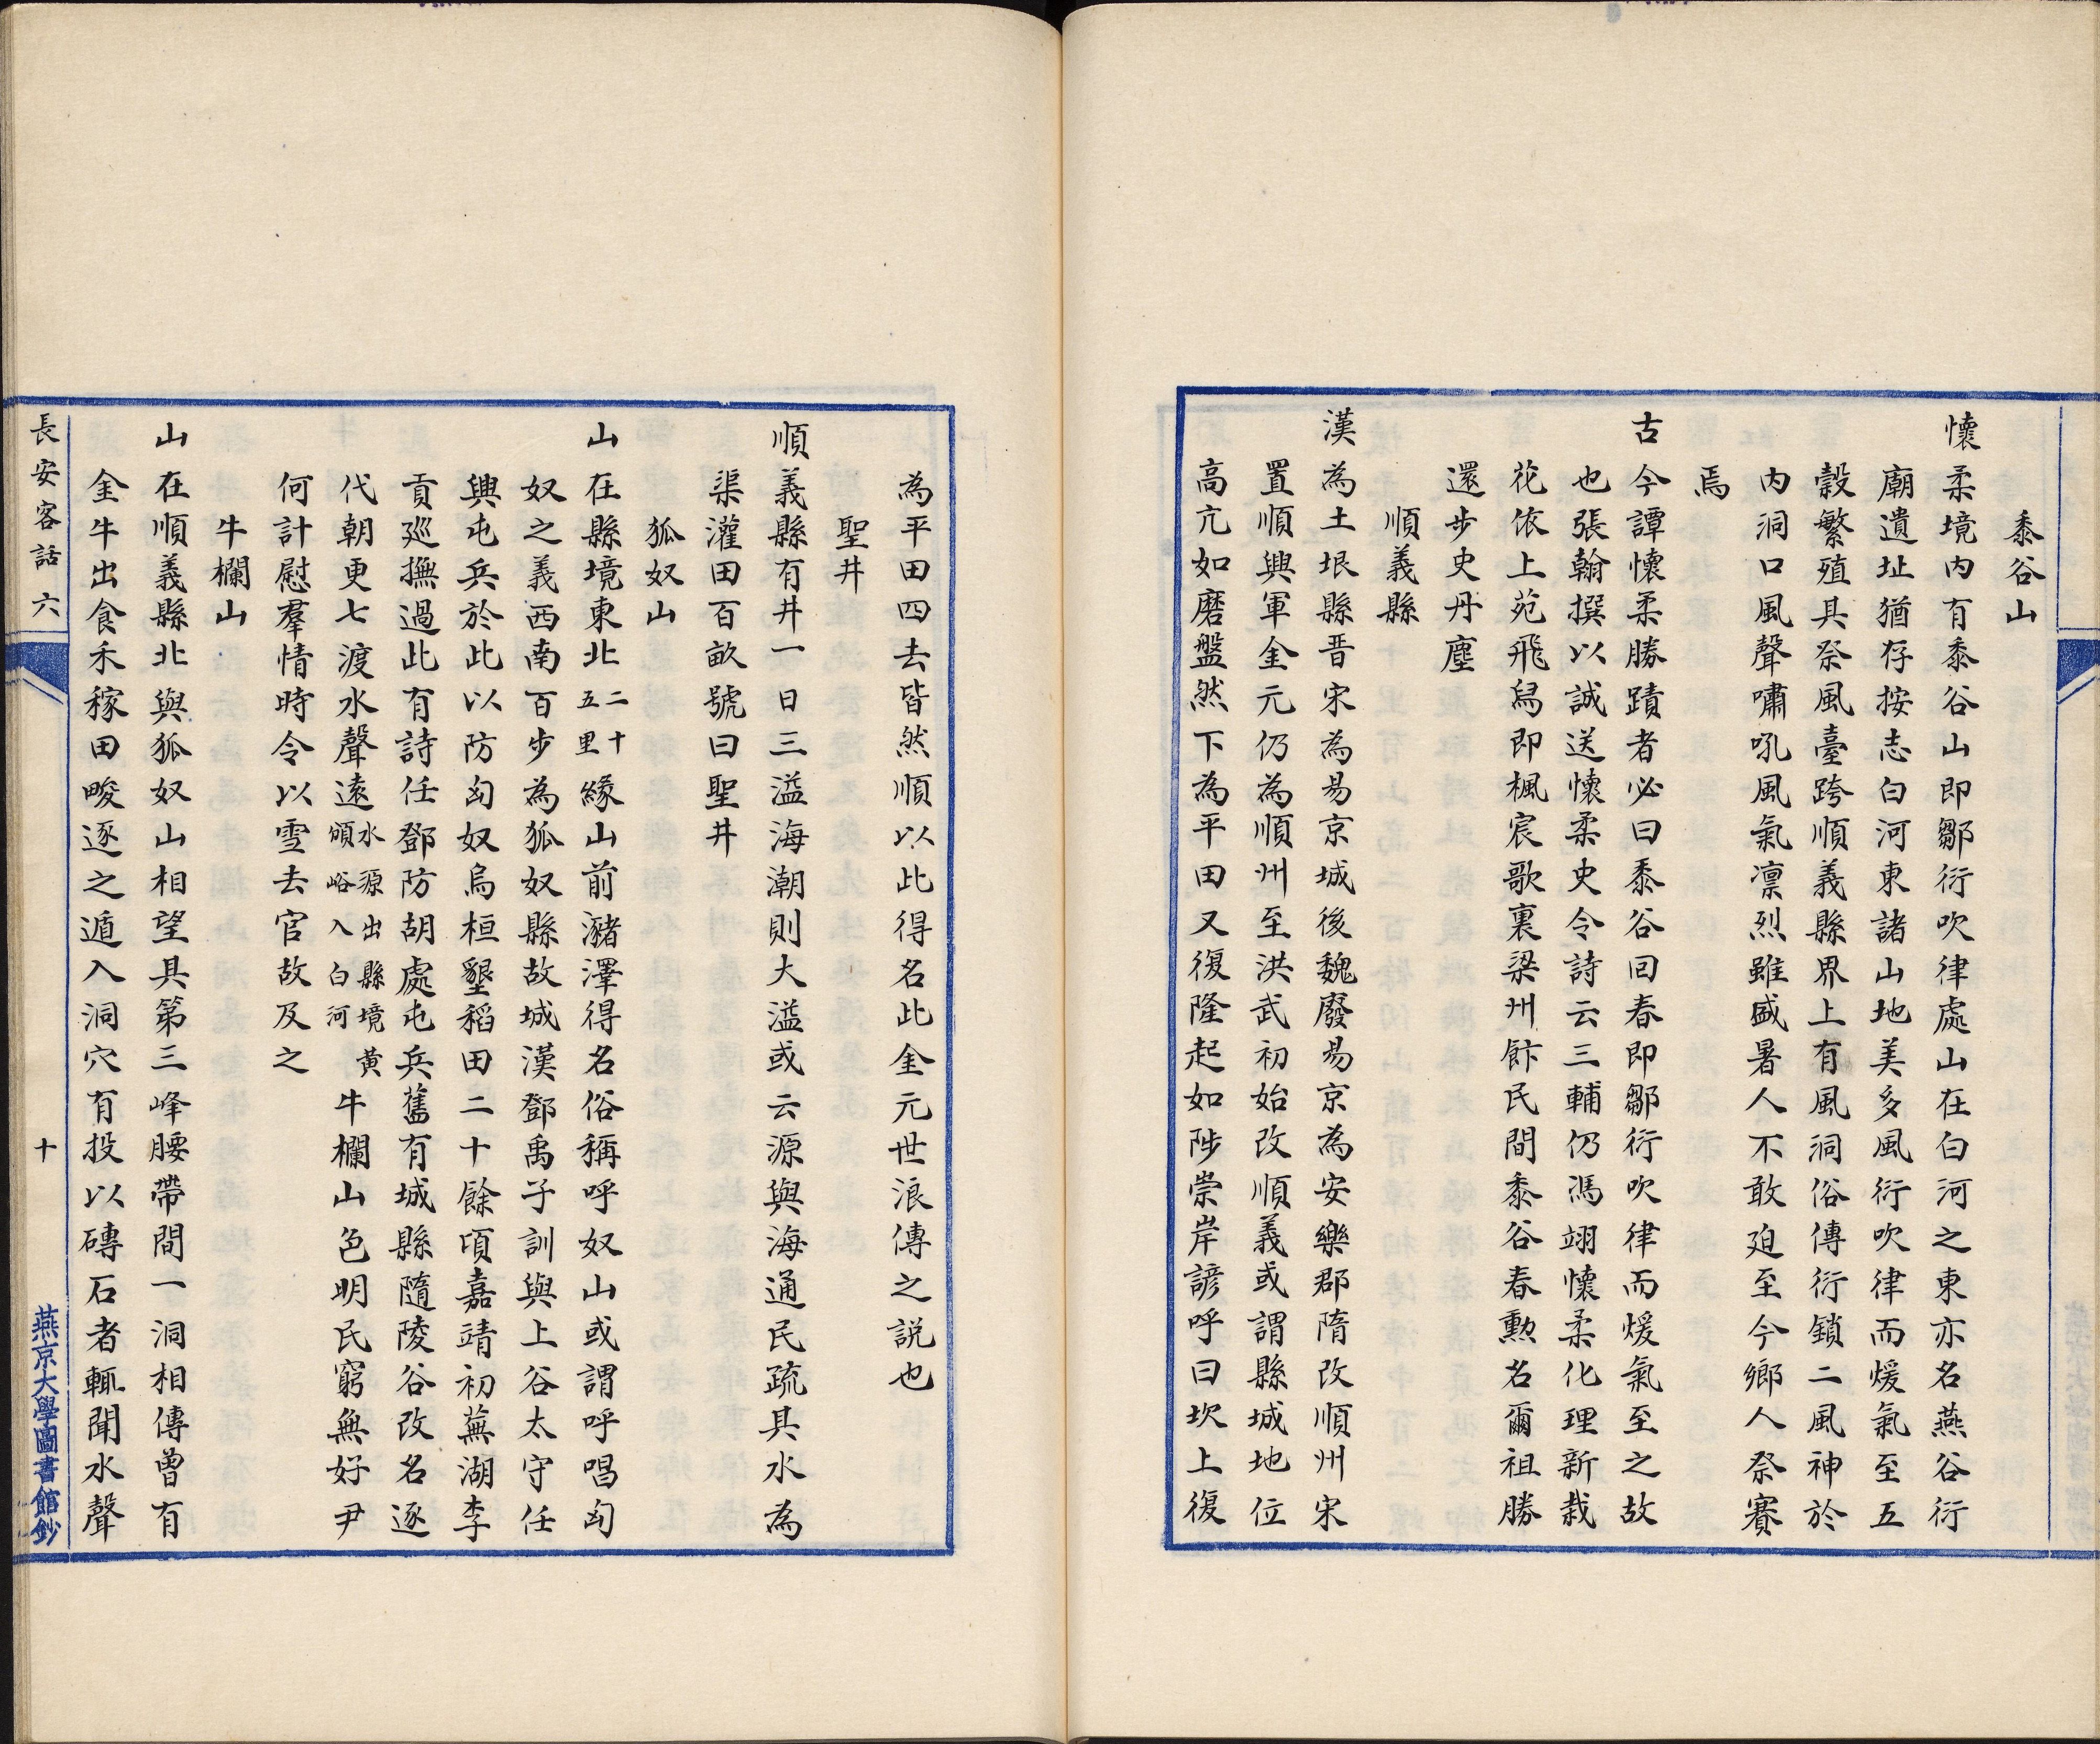 黍谷山
懷柔境内有黍谷山即鄒衍吹律處山在白河之東亦名燕谷衍
廟遺址猶存按志白河東諸山地美多風衍吹律而煖氣至五
穀繁殖具祭風臺跨順義縣界上有風洞俗傳衍鎖二風神於
内洞口風聲嘯吼風氣凛烈雖盛暑人不敢廹至今鄉人祭賽
焉
古今譚懷柔勝蹟者必曰黍谷回春即鄒衍吹律而煖氣至之故
也張翰撰以誠送懷柔史令詩云三輔仍馮翊懷柔化理新栽
花依上苑飛舄即楓宸歌裏梁州飰民間黍谷春勲名爾祖勝
還步史丹塵
順義縣
漢為土垠縣晋宋為易京城後魏廢易京為安樂郡隋改順州宋
置順興軍金元仍為順州至洪武初始改順義或謂縣城地位
高亢如磨盤然下為平田又復隆起如陟崇岸諺呼曰坎上復
為平田四去皆然順以此得名此金元世浪傳之説也
聖井
順義縣有井一日三溢海潮則大溢或云源與海通民疏具水為
渠灌田百畝號曰聖井
狐奴山
山在縣境東北二十五里緣山前瀦澤得名俗稱呼奴山或謂呼唱匈
奴之義西南百步為狐奴縣故城漢鄧禹子訓與上谷太守任
興屯兵於此以防匈奴烏桓墾稻田二十餘頃嘉靖初蕪湖李
貢廵撫過此有詩任鄧防胡處屯兵舊有城縣隨陵谷改名逐
代朝更七渡水聲遠水源出縣境黄頒峪入白河牛欄山色明民窮無好尹
何計慰羣情時令以雪去官故及之
牛欄山
山在順義縣北與狐奴山相望具第三峰腰帶間一洞相傳曾有
金牛出食禾稼田畯逐之遁入洞穴有投以磚石者輒聞水聲
長安客話 六
十
燕京大學圖書館鈔